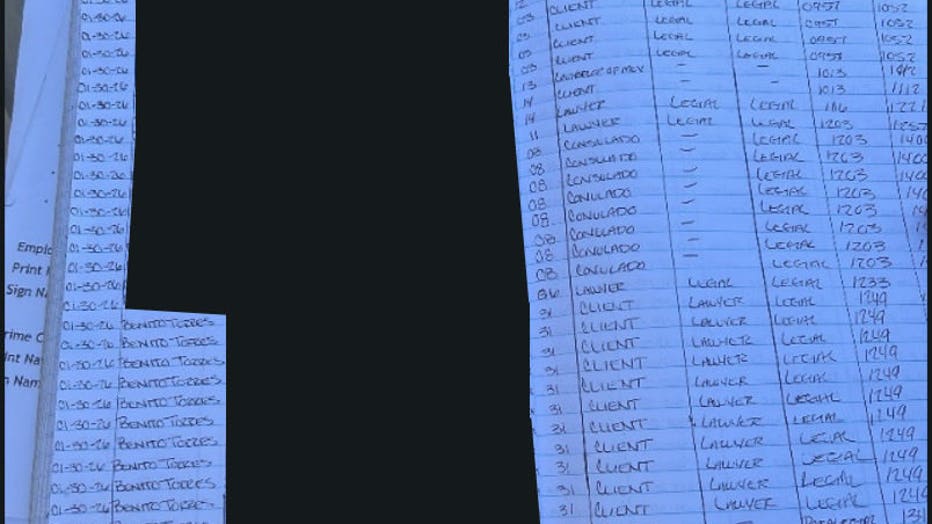 CLIENT LEGAL LEGAL 0957 1052
01-30-26 03 CLIENT LEGAL LEGAL 0957 1052
01-30-26 03 CLIENT LEGAL LEGAL 0957 1052
01-30-26 03 CLIENT LEGAL LEGAL 0957 1052
01-30-26 03 — — 1013
01-30-26 13 CLIENT — — 1013 1112
01-30-26 14 LAWYER LEGAL LEGAL
01-30-26 14 LAWYER LEGAL LEGAL 1203
01-30-26 11 CONSULADO — LEGAL 1203
01-30-26 08 CONSULADO — LEGAL 1203
01-30-26 08 CONSULADO — LEGAL 1203
01-30-26 08 CONULADO — LEGAL 1203
01-30-26 08 CONULADO — LEGAL 1203
01-30-26 08 CONVLADO — LEGAL 1203
01-30-26 08 CONULADO LEGAL 1203
01-30-26 LAWYER LEGAL LEGAL 1233
01-30-26 31 CLIENT LAWYER LEGAL 1249
01-30-26 BENITO TORRES 31 CLIENT LAWYER LEGAL 1249
01-30-26 BENITO TORRES 31 CLIENT LAWYER LEGAL 1249
01-30-26 BENITO TORRES 31 CLIENT LAWYER LEGAL 1249
01-30-26 BENITO TORRES 31 CLIENT LAWYER LEGAL 1249
01-30-26 BENITO TORRES 31 CLIENT LAWYER LEGAL 1249
01-30-26 BENITO TORRES 31 CLIENT LAWYER LEGAL 1249
01-30-26 BENITO TORRES 31 CLIENT LAWYER LEGAL 1249
01-30-26 BENITO TORRES 31 CLIENT LAWYER LEGAL 1249
01-30-26 BENITO TORRES
Emplo
Print
Sign Na
rime C
int Na
Nam